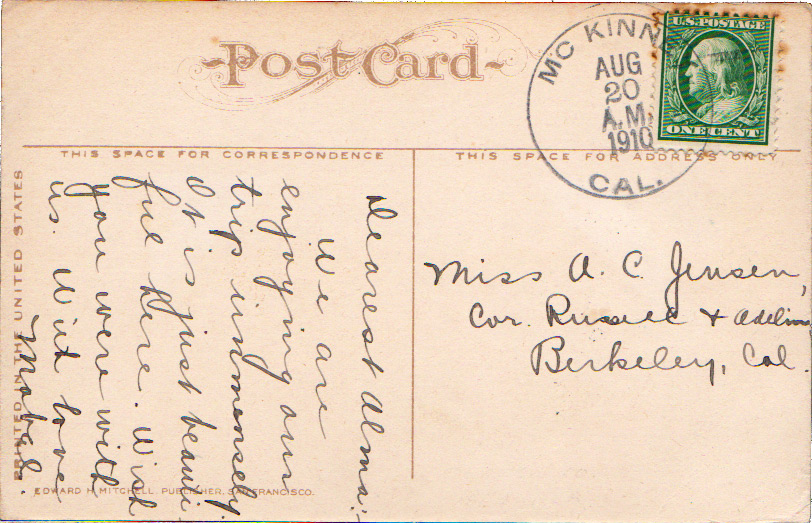 Post Card
MC KINNEY
AUG
20
A.M.
1910
CAL.
U.S. POSTAGE
ONE CENT
THIS SPACE FOR CORRESPONDENCE
THIS SPACE FOR ADDRESS ONLY
Dearest Alma:-
We are
enjoying our
trip immensely.
It is just beauti
ful here. Wish
you were with
us. With love
Mabel.
Miss A. C. Jensen,
Cor. Russell + Adeline
Berkeley, Cal.
PRINTED IN THE UNITED STATES
EDWARD H. MITCHELL, PUBLISHER, SAN FRANCISCO.